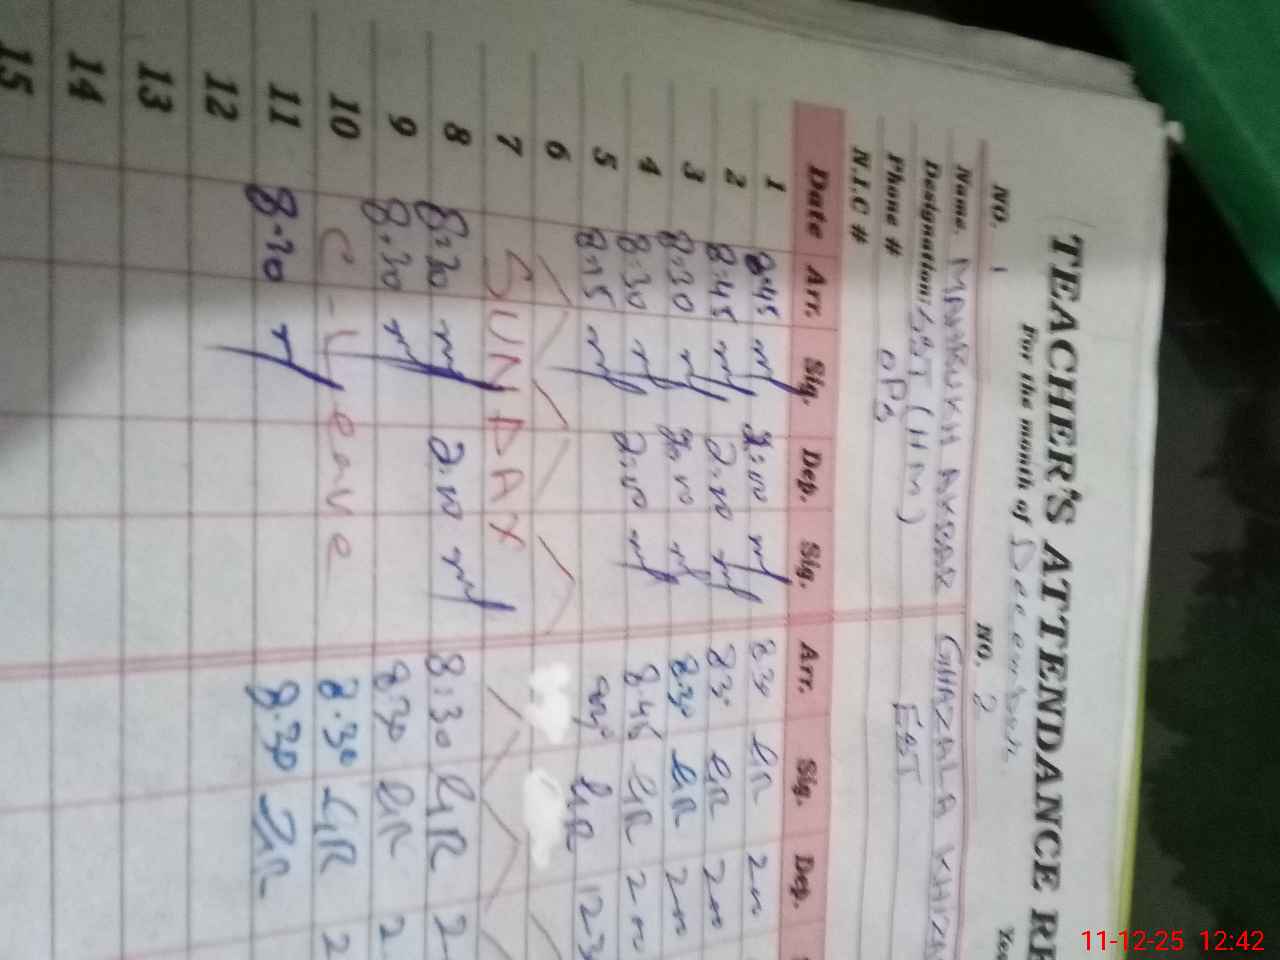 TEACHER'S ATTENDANCE RE
For the month of December
NO. 1 NO. 2
Name. GHAZALA KHIZA
Designation: SST (HM) EST
Phone # OPS
N.I.C #
Date Arr. Sig. Dep. Sig. Arr. Sig. Dep.
1 8.45 2:00 830 GR 200
2 8.45 2.00 830 GR 200
3 8.30 2.00 8.30 GR 200
4 8.30 2:00 8.45 GR 200
5 8.15 GR 123
6
7 SUNDAY
8 8:30 2.00 8:30 GR 2
9 8.30 8.30 GR 2
10 C-Leave 8.30 GR 2
11 8.30 8.30 GR
12
13
14
15
11-12-25 12:42